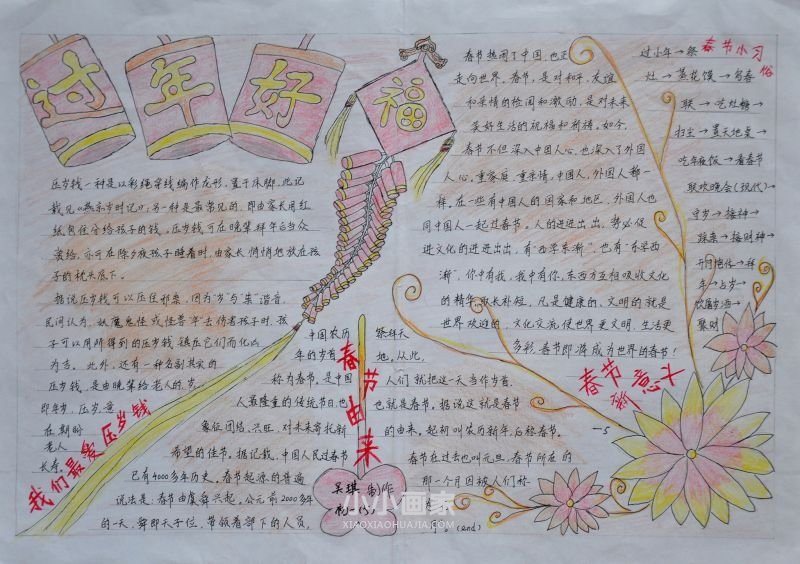 过年好
福
压岁钱一种是以彩绳穿线编作龙形,置于床脚,此记
载见《燕京岁时记》;另一种是最常见的,即由家长用红
纸包住分给孩子的钱。压岁钱可在晚辈拜年后当众
赏给,亦可在除夕夜孩子睡着时,由家长悄悄地放在孩
子的枕头底下。
据说压岁钱可以压住邪祟,因为“岁”与“祟”谐音,
民间认为,妖魔鬼怪或怪兽“年”去伤害孩子时,孩
子可以用所得到的压岁钱 镇住它们而化凶
为吉。此外,还有一种名副其实的
压岁钱,是由晚辈给老人的,岁
即年岁,压岁,意
在期盼
老人
长寿。
我们最爱压岁钱
中国农历
年的岁首
称为春节。是中国
人最隆重的传统节日,也
象征团结、兴旺,对未来寄托新
希望的佳节。据记载,中国人民过春节
已有4000多年历史。春节起源的普遍
说法是:春节由虞舜兴起。公元前2000多年
的一天,舜即天子位,带领着部下的人员,
春节由来
吴琪 制作
祭拜天
地。从此,
人们就把这一天当作岁首,
也就是春节。据说这就是春节
的由来,起初叫农历新年,后称春节。
春节在过去也叫元旦,春节所在的
那一个月因被人们称
(end)
春节热闹了中国,也正
走向世界。春节,是对和平、友谊
和亲情的检阅和激励,是对未来
美好生活的祝福和祈祷。如今,
春节不但深入中国人心,也深入了外国
人心。重家庭,重亲情,中国人,外国人都一
样。在一些有中国人的国家和地区,外国人也
同中国人一起过春节。人的进进出出,势必促
进文化的进进出出,有“西学东渐”,也有“东学西
渐”,你中有我,我中有你,东西方互相吸收文化
的精华,取长补短,凡是健康的、文明的就是
世界欢迎的。文化交流使世界更文明,生活更
多彩,春节即将成为世界的春节!
春节新意义
春节小习俗
过小年→祭
灶→蒸花馍→写春
联→吃灶糖→
扫尘→置天地桌→
吃年夜饭→看春节
联欢晚会(现代)→
守岁→接神→
踩祟→接财神→
开门炮仗→拜
年→占岁→
饮屠苏酒→
聚财
小小画家
XIAOXIAOHUAJIA.COM